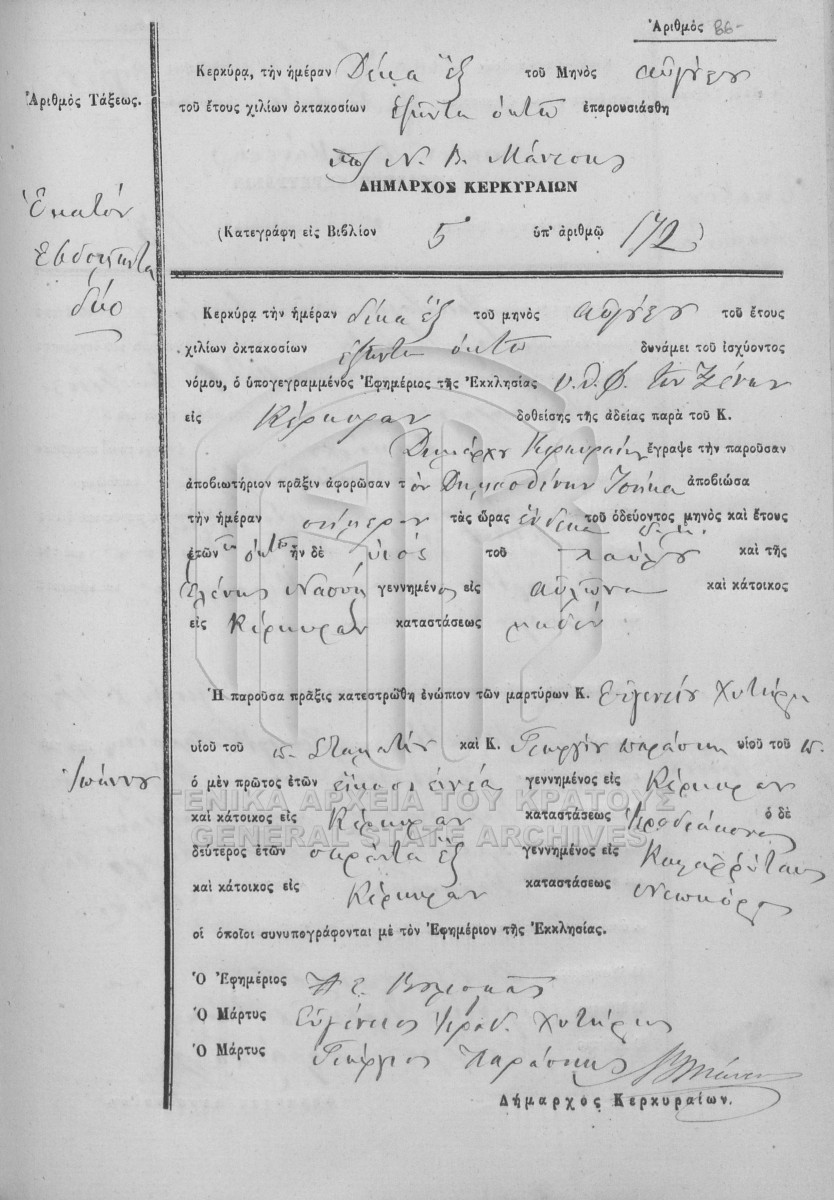 Ἀριθμὸς 86
Κερκύρᾳ, τὴν ἡμέραν Δέκα ἓξ τοῦ Μηνὸς αὐγούστου
Ἀριθμὸς Τάξεως.
τοῦ ἔτους χιλίων ὀκτακοσίων ἑξῆντα ὀκτὼ ἐπαρουσιάσθη
Ν. Β. Μάνεσης
ΔΗΜΑΡΧΟΣ ΚΕΡΚΥΡΑΙΩΝ
Ἑκατὸν Ἑβδομῆντα δύο
(Κατεγράφη εἰς Βιβλίον 5 ὑπ' ἀριθμῷ 172)
Κερκύρᾳ τὴν ἡμέραν δέκα ἓξ τοῦ μηνὸς αὐγούστου τοῦ ἔτους
χιλίων ὀκτακοσίων ἑξῆντα ὀκτὼ δυνάμει τοῦ ἰσχύοντος
νόμου, ὁ ὑπογεγραμμένος Ἐφημέριος τῆς Ἐκκλησίας υ. θ. Φ. τῶν Ξένων
εἰς Κέρκυραν δοθείσης τῆς ἀδείας παρὰ τοῦ Κ.
Δημάρχου Κερκυραίων ἔγραψε τὴν παροῦσαν
ἀποβιωτήριον πρᾶξιν ἀφορῶσαν τὸν Δημοσθένην ἀποβιώσα
τὴν ἡμέραν σήμερον τὰς ὥρας ἕνδεκα τοῦ ὁδεύοντος μηνὸς καὶ ἔτους
ἐτῶν ὀκτὼ ἦν δὲ υἱὸς τοῦ Παύλου καὶ τῆς
Ἑλένης Νάσση γεννημένος εἰς αὐλῶνα καὶ κάτοικος
εἰς Κέρκυραν καταστάσεως παιδίον
Ἡ παροῦσα πρᾶξις κατεστρώθη ἐνώπιον τῶν μαρτύρων Κ. Εὐγενείου Χυτήρη
υἱοῦ τοῦ π. Σταματίου καὶ Κ. Γεωργίου Παράσκη υἱοῦ τοῦ π.
Ἰωάννου
ὁ μὲν πρῶτος ἐτῶν εἴκοσι ἐννέα γεννημένος εἰς Κέρκυραν
ΓΕΝΙΚΑ ΑΡΧΕΙΑ ΤΟΥ ΚΡΑΤΟΥΣ
καὶ κάτοικος εἰς Κέρκυραν καταστάσεως Ἱεροδιάκονος ὁ δὲ
GENERAL STATE ARCHIVES
δεύτερος ἐτῶν σαράντα ἓξ γεννημένος εἰς Καλαῤῥύταις
καὶ κάτοικος εἰς Κέρκυραν καταστάσεως Νεωκόρος
οἱ ὁποῖοι συνυπογράφονται μὲ τὸν Ἐφημέριον τῆς Ἐκκλησίας.
Ὁ Ἐφημέριος
Ὁ Μάρτυς Εὐγένειος Ἱεροδ. Χυτήρης
Ὁ Μάρτυς Γεώργιος Παράσκης
Δήμαρχος Κερκυραίων.